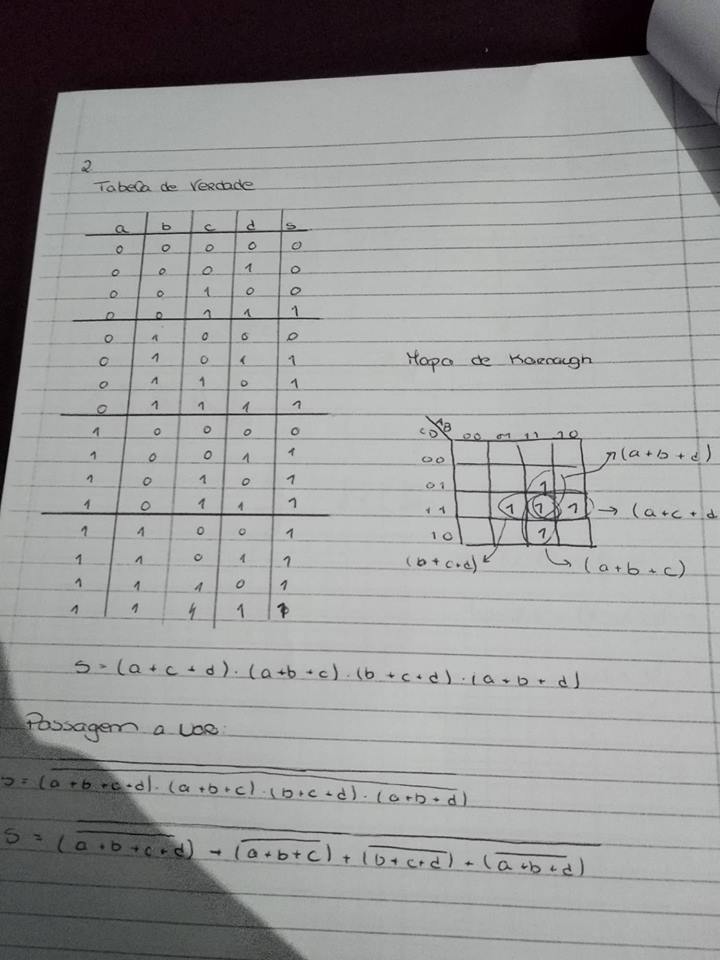 2
Tabela de Verdade
a b c d s
0 0 0 0 0
0 0 0 1 0
0 0 1 0 0
0 0 1 1 1
0 1 0 0 0
0 1 0 1 1
0 1 1 0 1
0 1 1 1 1
1 0 0 0 0
1 0 0 1 1
1 0 1 0 1
1 0 1 1 1
1 1 0 0 1
1 1 0 1 1
1 1 1 0 1
1 1 1 1 1
Mapa de Karnaugh
CD AB 00 01 11 10
00 (a+b+d)
01 1
11 1 1 1 → (a+c+d
10 1
(b+c+d) (a+b+c)
S = (a+c+d).(a+b+c).(b+c+d).(a+b+d)
Passagem a
S = (a+b+c+d).(a+b+c).(b+c+d).(a+b+d)
S = (a+b+c+d) + (a+b+c) + (b+c+d) + (a+b+d)